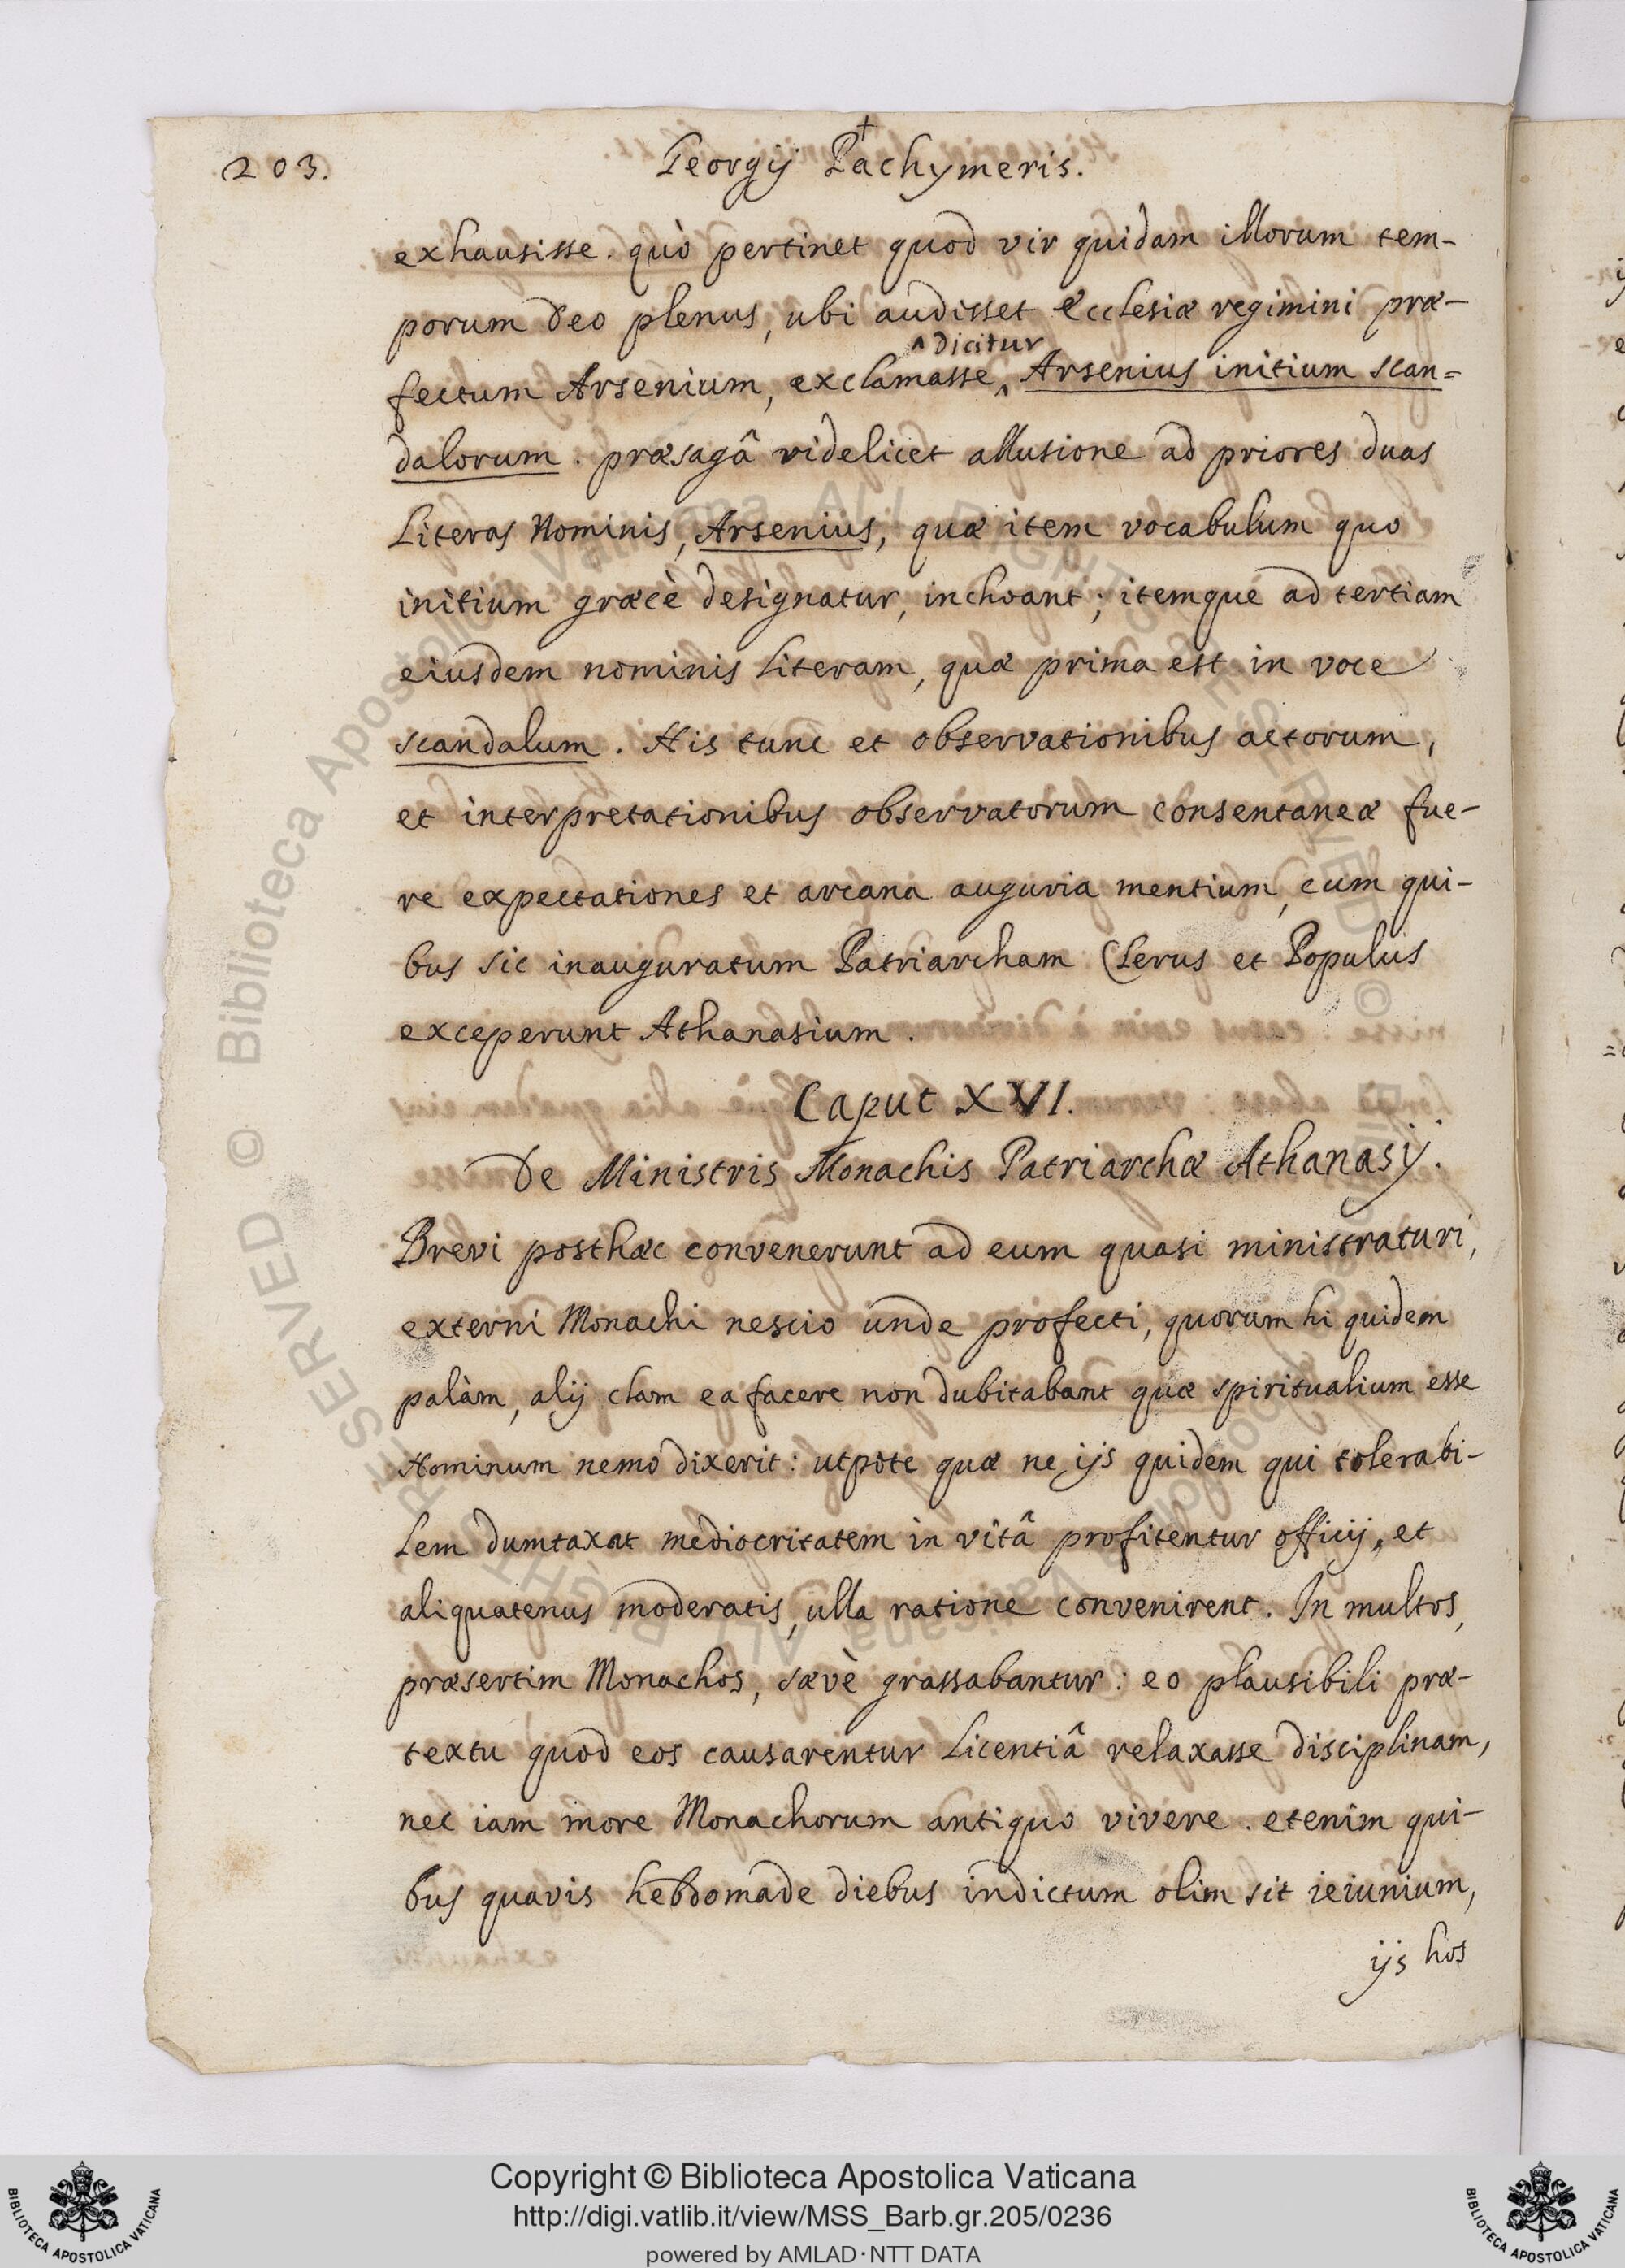 203.
+
Georgij Pachymeris.
exhausisse. quò pertinet quod vir quidam illorum tem-
porum Deo plenus, ubi audisset Ecclesiæ regimini præ-
^ dicitur
fectum Arsenium, exclamasse ^ Arsenius initium scan=
dalorum. præsagâ videlicet allusione ad priores duas
Literas Nominis, Arsenius, quæ item vocabulum quo
initium græcè designatur, inchoant; itemque ad tertiam
eiusdem nominis Literam, quæ prima est in voce
scandalum. His tunc et observationibus actorum,
et interpretationibus observatorum consentaneæ fue-
re expectationes et arcana auguria mentium, cum qui-
bus sic inauguratum Patriarcham Clerus et Populus
exceperunt Athanasium.
Caput XVI.
De Ministris Monachis Patriarchæ Athanasij.
Brevi posthæc convenerunt ad eum quasi ministraturi,
externi Monachi nescio unde profecti, quorum hi quidem
palàm, alij clam ea facere non dubitabant quæ spiritualium esse
Hominum nemo dixerit: utpote quæ ne ijs quidem qui tolerabi-
lem dumtaxat mediocritatem in vitâ profitentur officij, et
aliquatenus moderatis, ulla ratione convenirent. In multos,
præsertim Monachos, sævè grassabantur: eo plausibili præ-
textu quod eos causarentur Licentiâ relaxasse disciplinam,
nec iam more Monachorum antiquo vivere. etenim qui-
bus quavis hebdomade diebus indictum olim sit ieiunium,
ijs hos
© Biblioteca Apostolica Vaticana ALL RIGHTS RESERVED
Copyright © Biblioteca Apostolica Vaticana
http://digi.vatlib.it/view/MSS_Barb.gr.205/0236
powered by AMLAD·NTT DATA
BIBLIOTECA APOSTOLICA VATICANA
BIBLIOTECA APOSTOLICA VATICANA